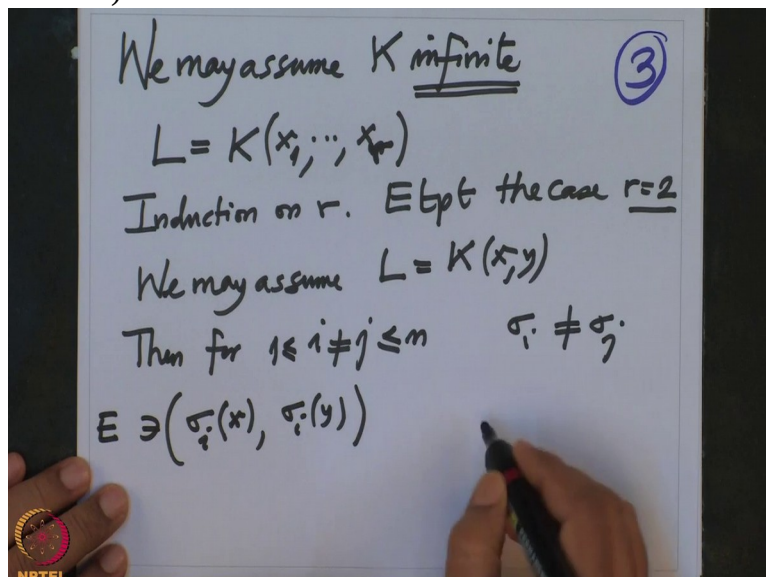 We may assume K infinite
3
L = K(x₁, ..., xᵣ)
Induction on r. Etpt the case r=2
We may assume L = K(x,y)
Then for 1≤ i ≠ j ≤ n σᵢ ≠ σⱼ
E ∋ (σᵢ(x), σᵢ(y))
NPTEL